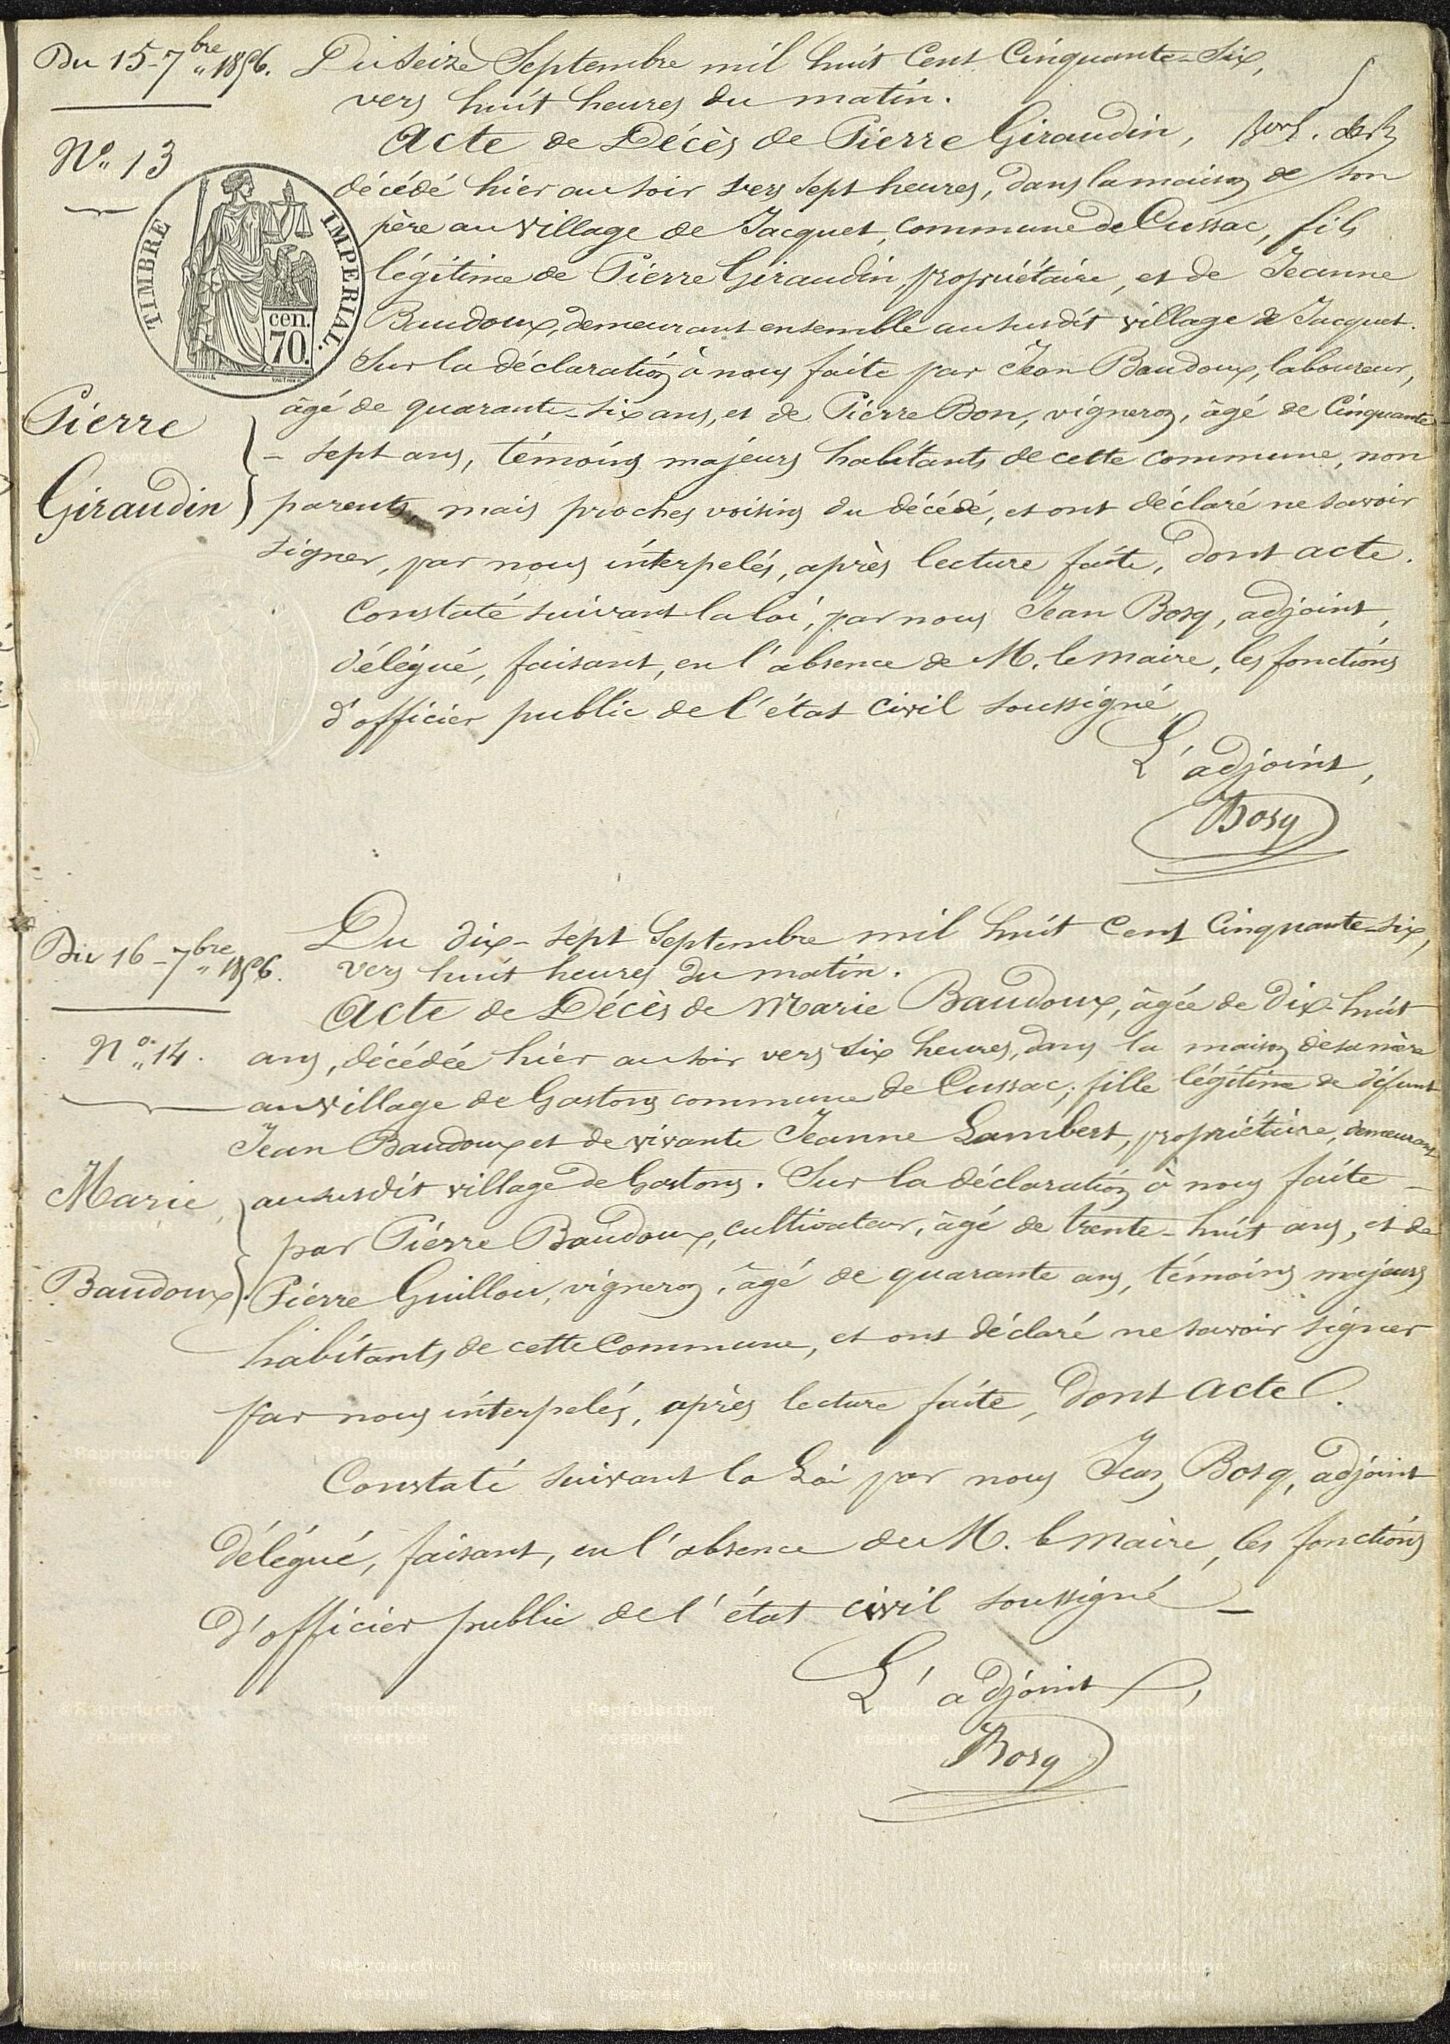 Du 15-7bre 1856.
Du Seize Septembre mil huit Cent Cinquante-Six,
vers huit heures du matin.
N° 13
Acte de Décès de Pierre Giraudin,
décédé hier au soir vers sept heures, dans la maison de son
père au village de Jacquet, commune de Cussac, fils
légitime de Pierre Giraudin, propriétaire, et de Jeanne
Baudoux, demeurant ensemble au susdit village de Jacquet.
TIMBRE IMPERIAL.
cen.
70.
Sur la déclaration à nous faite par Jean Baudoux, laboureur,
âgé de quarante-six ans, et de Pierre Bon, vigneron, âgé de Cinquante
- sept ans, témoins majeurs habitants de cette commune, non
parents, mais proches voisins du décédé, et ont déclaré ne savoir
signer, par nous interpelés, après lecture faite, dont acte.
Pierre
Giraudin
Constaté suivant la loi, par nous Jean Bosq, adjoint,
délégué, faisant, en l'absence de M. le maire, les fonctions
d'officier public de l'état civil soussigné
L'adjoint,
Bosq
Du 16-7bre 1856.
Du dix-sept Septembre mil huit Cent Cinquante-six,
vers huit heures du matin.
N° 14.
Acte de Décès de Marie Baudoux, âgée de Dix-huit
ans, décédée hier au soir vers six heures, dans la maison de sa mère
au village de Gastons commune de Cussac; fille légitime de défunt
Jean Baudoux et de vivante Jeanne Lambert, propriétaire, demeurant
au susdit village de Gastons. Sur la déclaration à nous faite -
par Pierre Baudoux, cultivateur, âgé de trente-huit ans, et de
Pierre Guillou, vigneron, âgé de quarante ans, témoins majeurs
habitants de cette Commune, et ont déclaré ne savoir signer
par nous interpelés, après lecture faite, Dont Acte.
Marie
Baudoux
Constaté suivant la Loi par nous Jean Bosq, adjoint
délégué, faisant, en l'absence de M. le Maire, les fonctions
d'officier public de l'état civil soussigné -
L'adjoint,
Bosq
©Reproduction réservée